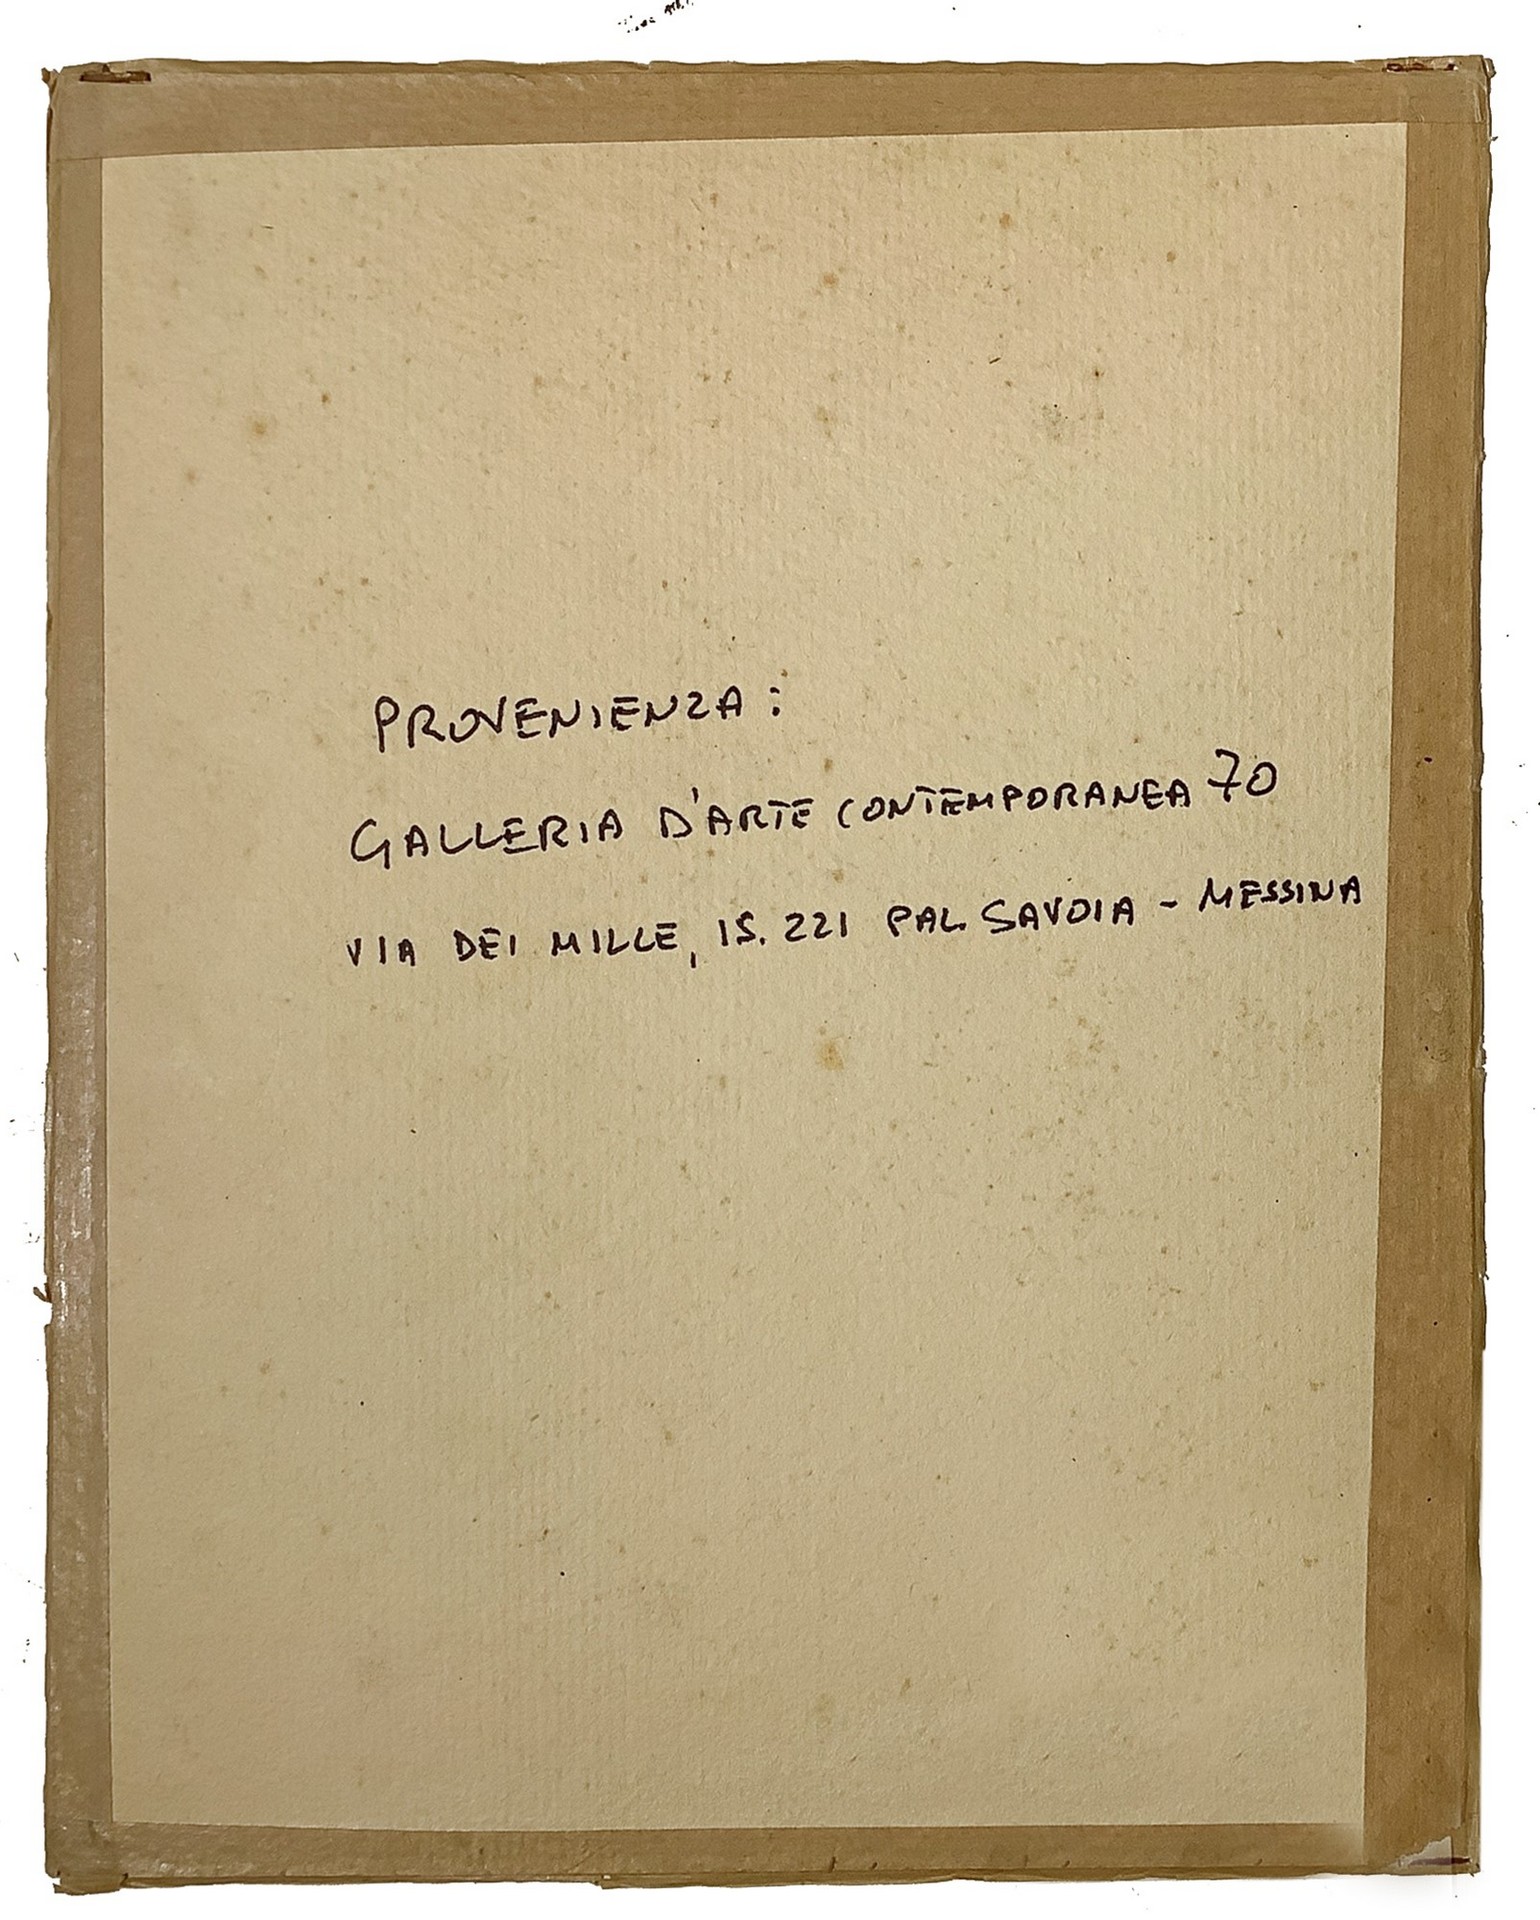 PROVENIENZA:
GALLERIA D'ARTE CONTEMPORANEA 70
VIA DEI MILLE, IS. 221 PAL. SAVOIA - MESSINA